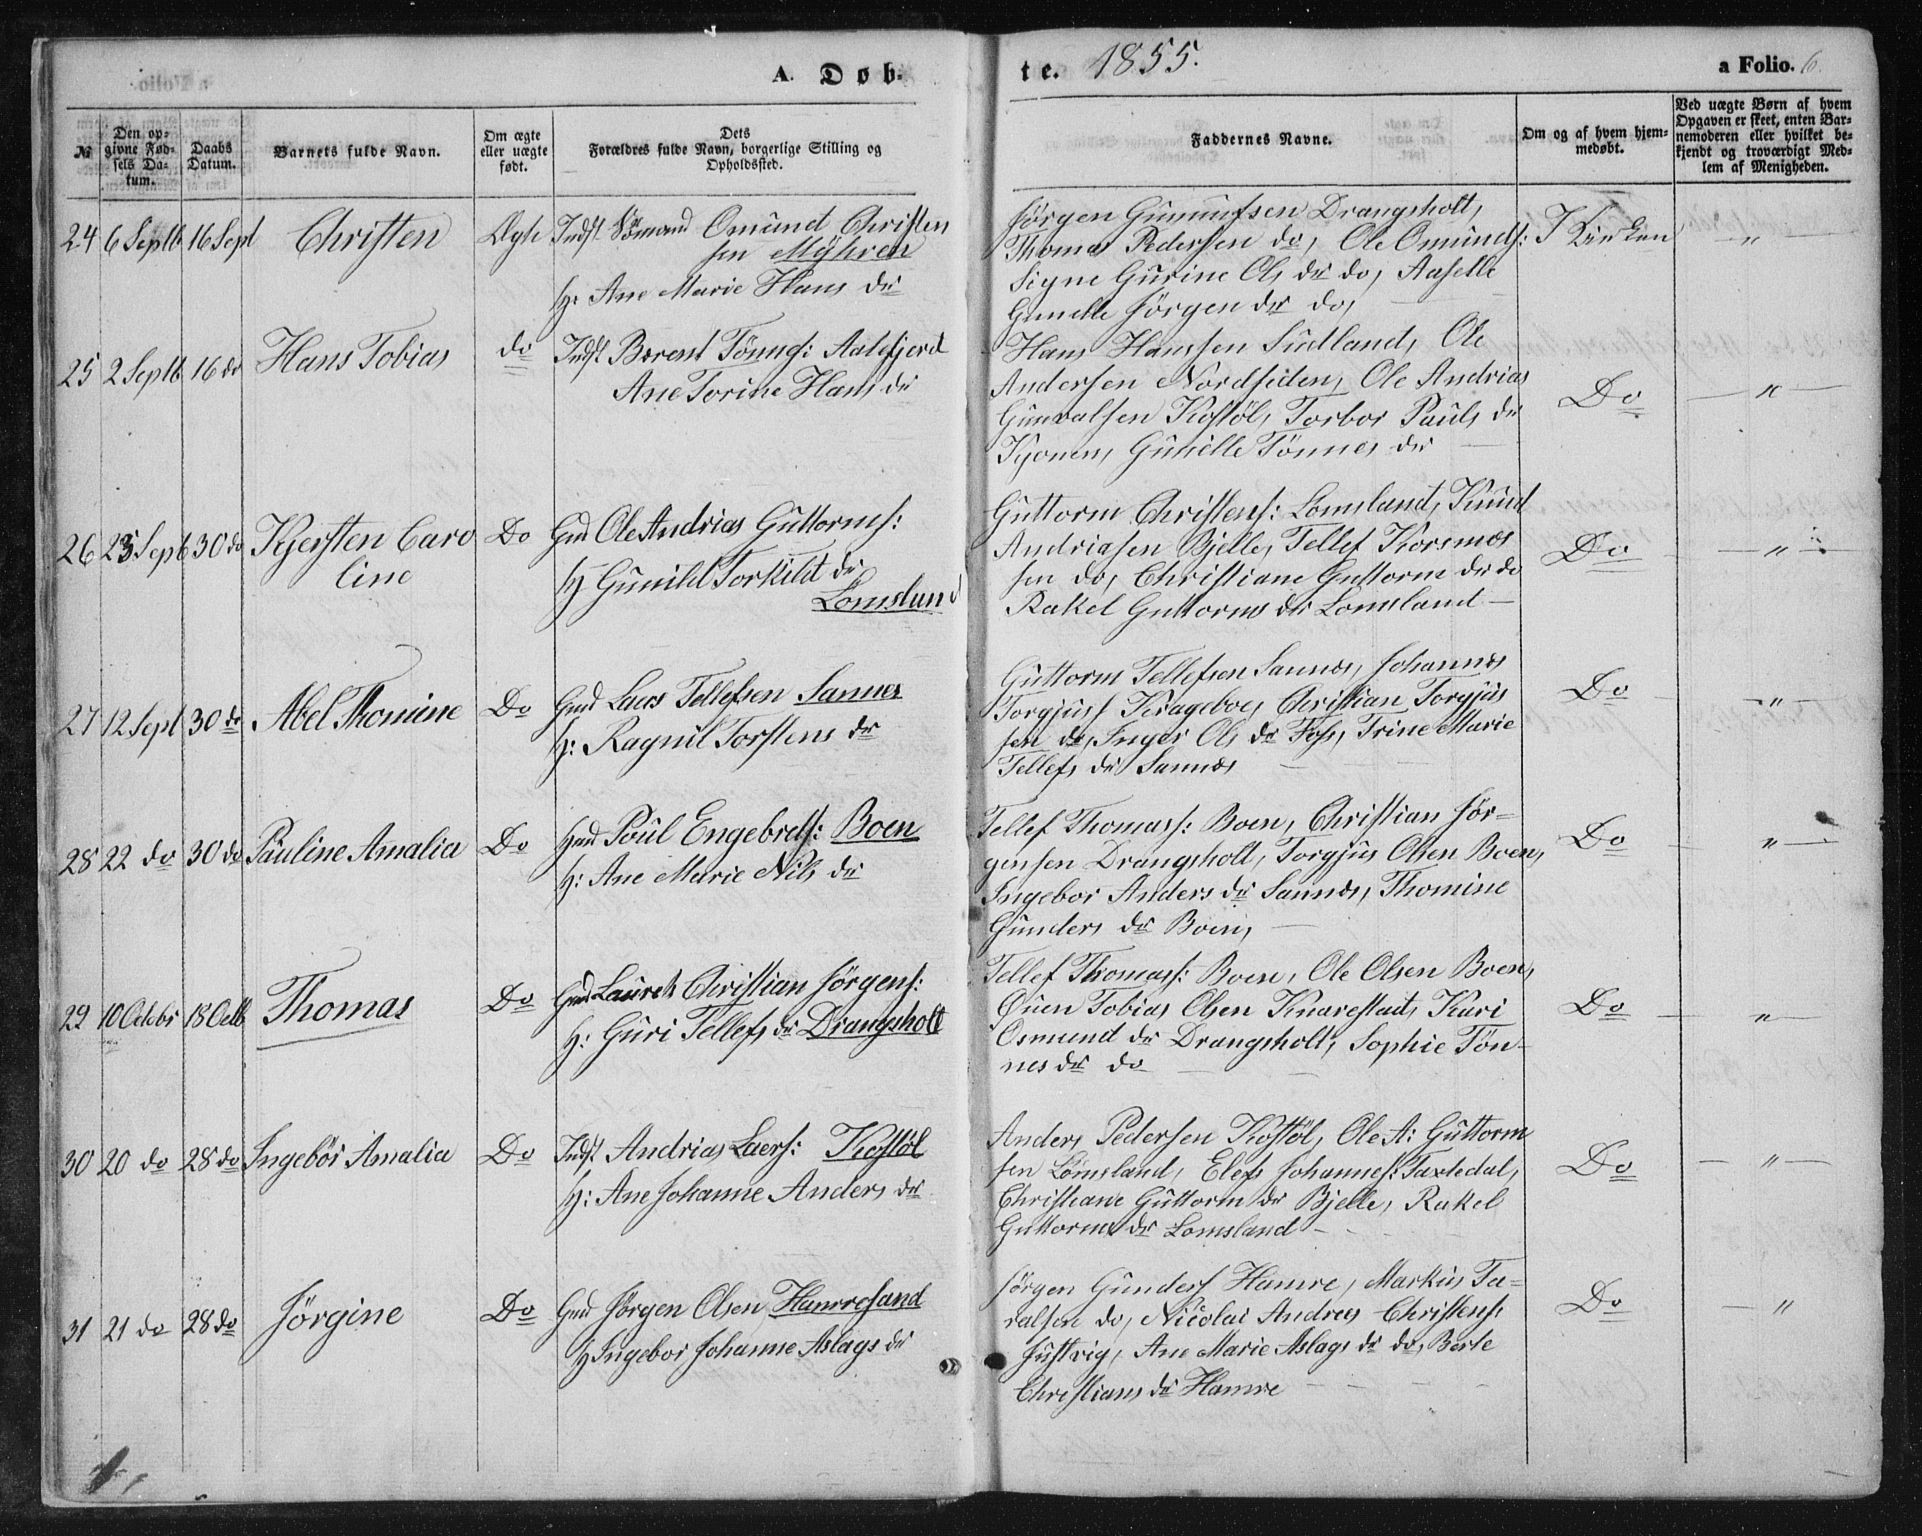 A. Døb-
te. 1855.
a Folio. 6.
№
Den opgivne Fødsels Datum.
Daabs Datum.
Barnets fulde Navn.
Om ægte eller uægte født.
Dets Forældres fulde Navn, borgerlige Stilling og Opholdssted.
Faddernes Navne.
Om og af hvem hjemmedøbt.
Ved uægte Børn af hvem Opgaven er skeet, enten Barnemoderen eller hvilket bekjendt og troværdigt Medlem af Menigheden.
24 6 Septb 16 Sept Christen Ægte Indst Sömand Omund Christen
sen Myhren
H: Ane Marie Hans dr
Jörgen Gunnufsen Drangsholt,
Thomas Pedersen do, Ole Omunds:
Signe Gurine Ols dr do, Aaselle
Gunelle Jörgen dr do,
I Kirken "
25 2 Septb 16 do Hans Tobias do Indst Berent Tönnes: Aalefjerd
Ane Torine Hans dr
Hans Hanssen Sudland, Ole
Andersen Nordsiden, Ole Andrias
Gunvalsen Kostöl, Torbor Pauls dr
Kjonen, Gunelle Tönnes dr
Do "
26 23 Septb 30 do Kjersten Caro
line
Do Gmd Ole Andrias Guttorms:
H Gunild Torkild dr
Lomsland
Guttorm Christens: Lomsland, Knud
Andriasen Bjelle, Tellef Korsmos
sen do, Christiane Guttorm dr do
Rakel Guttorms dr Lomsland
Do "
27 12 Sept 30 do Abel Thomine Do Gmd Laas Tellefsen Sannes
H: Ragnil Torstens dr
Guttorm Tellefsen Sannes, Johannes
Torgjus Krageboe, Christian Torgjus
sen do, Inger Ols dr Foss, Trine Marie
Tellefs dr Sannes
Do "
28 22 do 30 do Pauline Amalia Do Hmd Poul Engebrets: Boen
H: Ane Marie Nils dr
Tellef Thomass: Boen, Christian Jör-
gensen Drangsholt, Torgjus Olsen Boen,
Ingebor Anders dr Sannes, Thomine
Gunders dr Boen,
Do "
29 10 Octobr 18 Octb Thomas Do Gmd Laurets Christian Jörgens:
H: Guri Tellefs dr Drangsholt
Tellef Thomass: Boen, Ole Olsen Boen,
Ouen Tobias Olsen Knarestad, Kari
Osmund dr Drangsholt, Sophie Tön-
nes dr do
Do "
30 20 do 28 do Ingebör Amalia Do Indst Andrias Laers: Kostöl
H: Ane Johanne Anders dr
Anders Pedersen Kostöl, Ole A: Guttorm
sen Lomsland, Elef Johannes: Taxtedal,
Christiane Guttorm dr Bjelle, Rakel
Guttorms dr Lomsland
Do "
31 21 do 28 do Jörgine Do Gmd Jörgen Olsen Hamresand
H Ingebor Johanne Aslags dr
Jörgen Gunders Hamre, Markus Ta-
ralsen do, Nicolai Andreas Christens:
Justvig, Ane Marie Aslags dr do, Berte
Christians dr Hamre
Do "